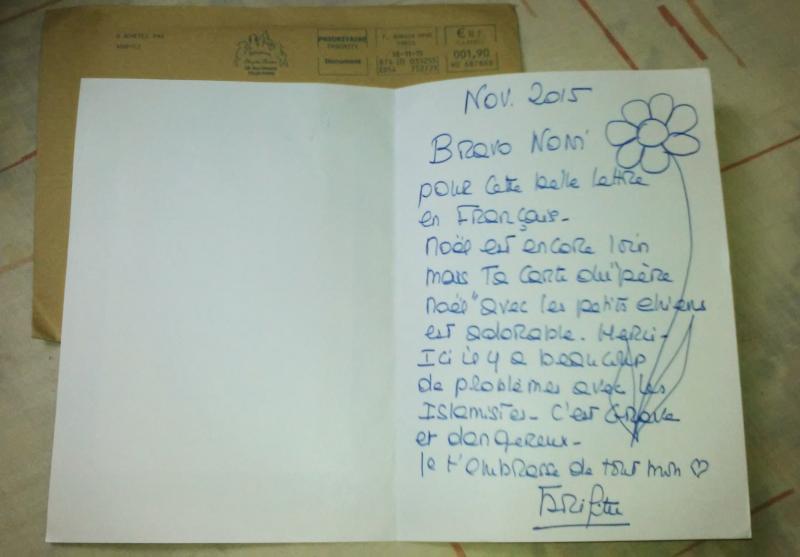 N'ACHETEZ PAS
PRIORITAIRE
PRIORITY
Document
€ R.F.
001,90
Nov. 2015
Bravo Noni
pour cette belle lettre
en Français -
Noël est encore loin
mais ta carte du "père
Noël" avec les petits chiens
est adorable. Merci -
Ici il y a beaucoup
de problèmes avec les
Islamistes - C'est grave
et dangereux -
Je t'embrasse de tout mon ♡
Brigitte